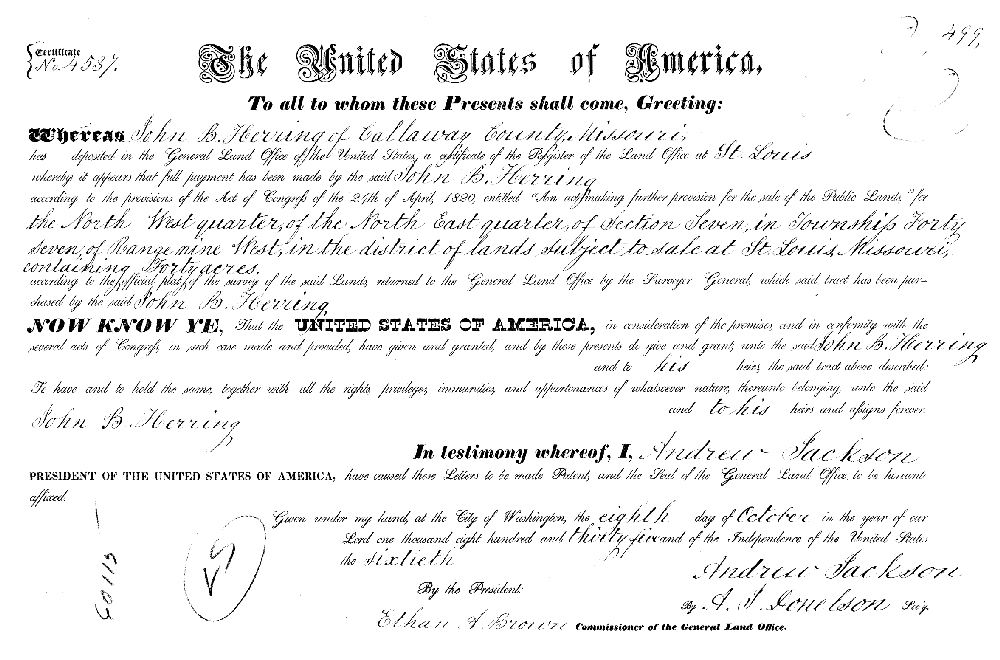 Certificate
No. 4587.
499,
The United States of America,
To all to whom these Presents shall come, Greeting:
Whereas John B. Herring of Callaway County, Missouri,
has deposited in the General Land Office of the United States, a certificate of the Register of the Land Office at St. Louis
whereby it appears that full payment has been made by the said John B. Herring
according to the provisions of the Act of Congress of the 24th of April, 1820, entitled "An act making further provision for the sale of the Public Lands," for
the North West quarter, of the North East quarter, of Section Seven, in Township Forty
Seven, of Range nine West, in the district of lands subject to sale at St. Louis, Missouri,
containing Forty acres.
according to the official plat of the survey of the said Lands, returned to the General Land Office by the Surveyor General, which said tract has been pur-
chased by the said John B. Herring
NOW KNOW YE, That the UNITED STATES OF AMERICA, in consideration of the premises, and in conformity with the
several acts of Congress, in such case made and provided, have given and granted, and by these presents do give and grant, unto the said John B. Herring
and to his heirs, the said tract above described:
To have and to hold the same, together with all the rights, privileges, immunities, and appurtenances of whatsoever nature, thereunto belonging, unto the said
and to his heirs and assigns forever.
John B. Herring
In testimony whereof, I, Andrew Jackson
PRESIDENT OF THE UNITED STATES OF AMERICA, have caused these Letters to be made Patent, and the Seal of the General Land Office to be hereunto
affixed.
Given under my hand, at the City of Washington, the eighth day of October in the year of our
Lord one thousand eight hundred and thirty five and of the Independence of the United States
the sixtieth
Andrew Jackson
By the President:
By A. J. Donelson Sec'y.
Ethan A. Brown Commissioner of the General Land Office.